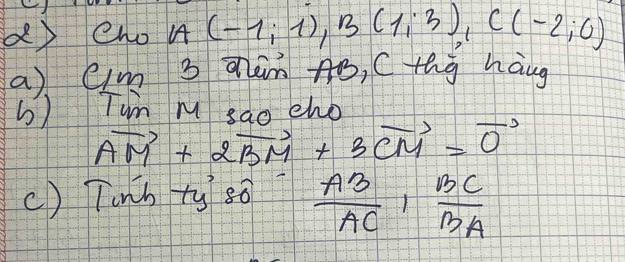 2) Cho A (-1; 1), B (1; 3), C (-2; 0)
a) C/m 3 điểm A,B,C thẳng hàng
b) Tìm M sao cho
\overrightarrow{AM} + 2\overrightarrow{BM} + 3\overrightarrow{CM} = \overrightarrow{0}
c) Tính tỷ số \frac{AB}{AC}, \frac{BC}{BA}